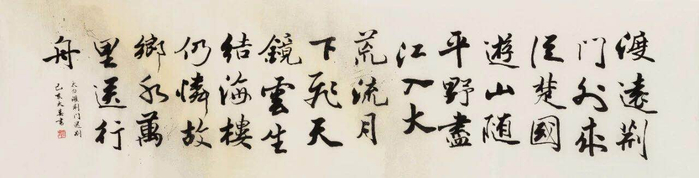 渡遠荆
門外来
從楚國
遊山随
平野盡
江入大
荒流月
下飛天
鏡雲生
結海樓
仍憐故
鄉水萬
里送行
舟
太白渡荆门送别
己亥大書